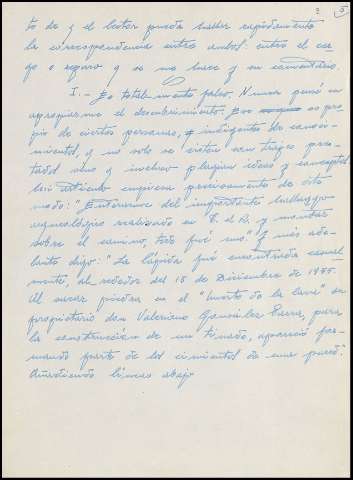 3 5
to de y el lector pueda hallar rapidamente
la correspondencia entre ambos. entre el car
go o reparo y se no hace y su comentario.
I.- Es totalmente falso. Nunca pensé en
apropiarme el descubrimiento. Eso es pro
pio de ciertas personas, indigentes de conoci-
mientos, y no solo se visten con trajes pres-
tados sino q incluso plagian ideas y conceptos
Mi artículo empieza precisamente de este
modo: "Enterarme del importante hallazgo
arqueológico realizado en C. el R. y montar
sobre el camino, todo fué uno." Y más ade
lante digo: "La lápida fué encontrada casual
mente, al rededor del 15 de Diciembre de 1955.
Al sacar piedras en el "huerto de la" su
propietario don Valeriano González Parra, para
la construcción de un tinado, apareció for
mando parte de los cimientos de una pared."
Añadiendo líneas abajo